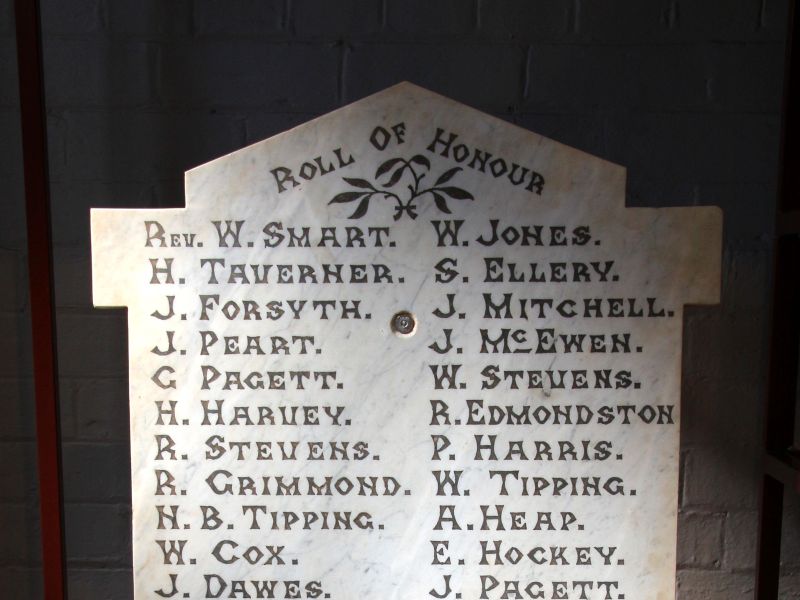 ROLL OF HONOUR
REV. W. SMART. W. JONES.
H. TAVERNER. S. ELLERY.
J. FORSYTH. J. MITCHELL.
J. PEART. J. McEWEN.
G PAGETT. W. STEVENS.
H. HARVEY. R. EDMONDSTON
R. STEVENS. P. HARRIS.
R. GRIMMOND. W. TIPPING.
H. B. TIPPING. A. HEAP.
W. COX. E. HOCKEY.
J. DAWES. J. PAGETT.